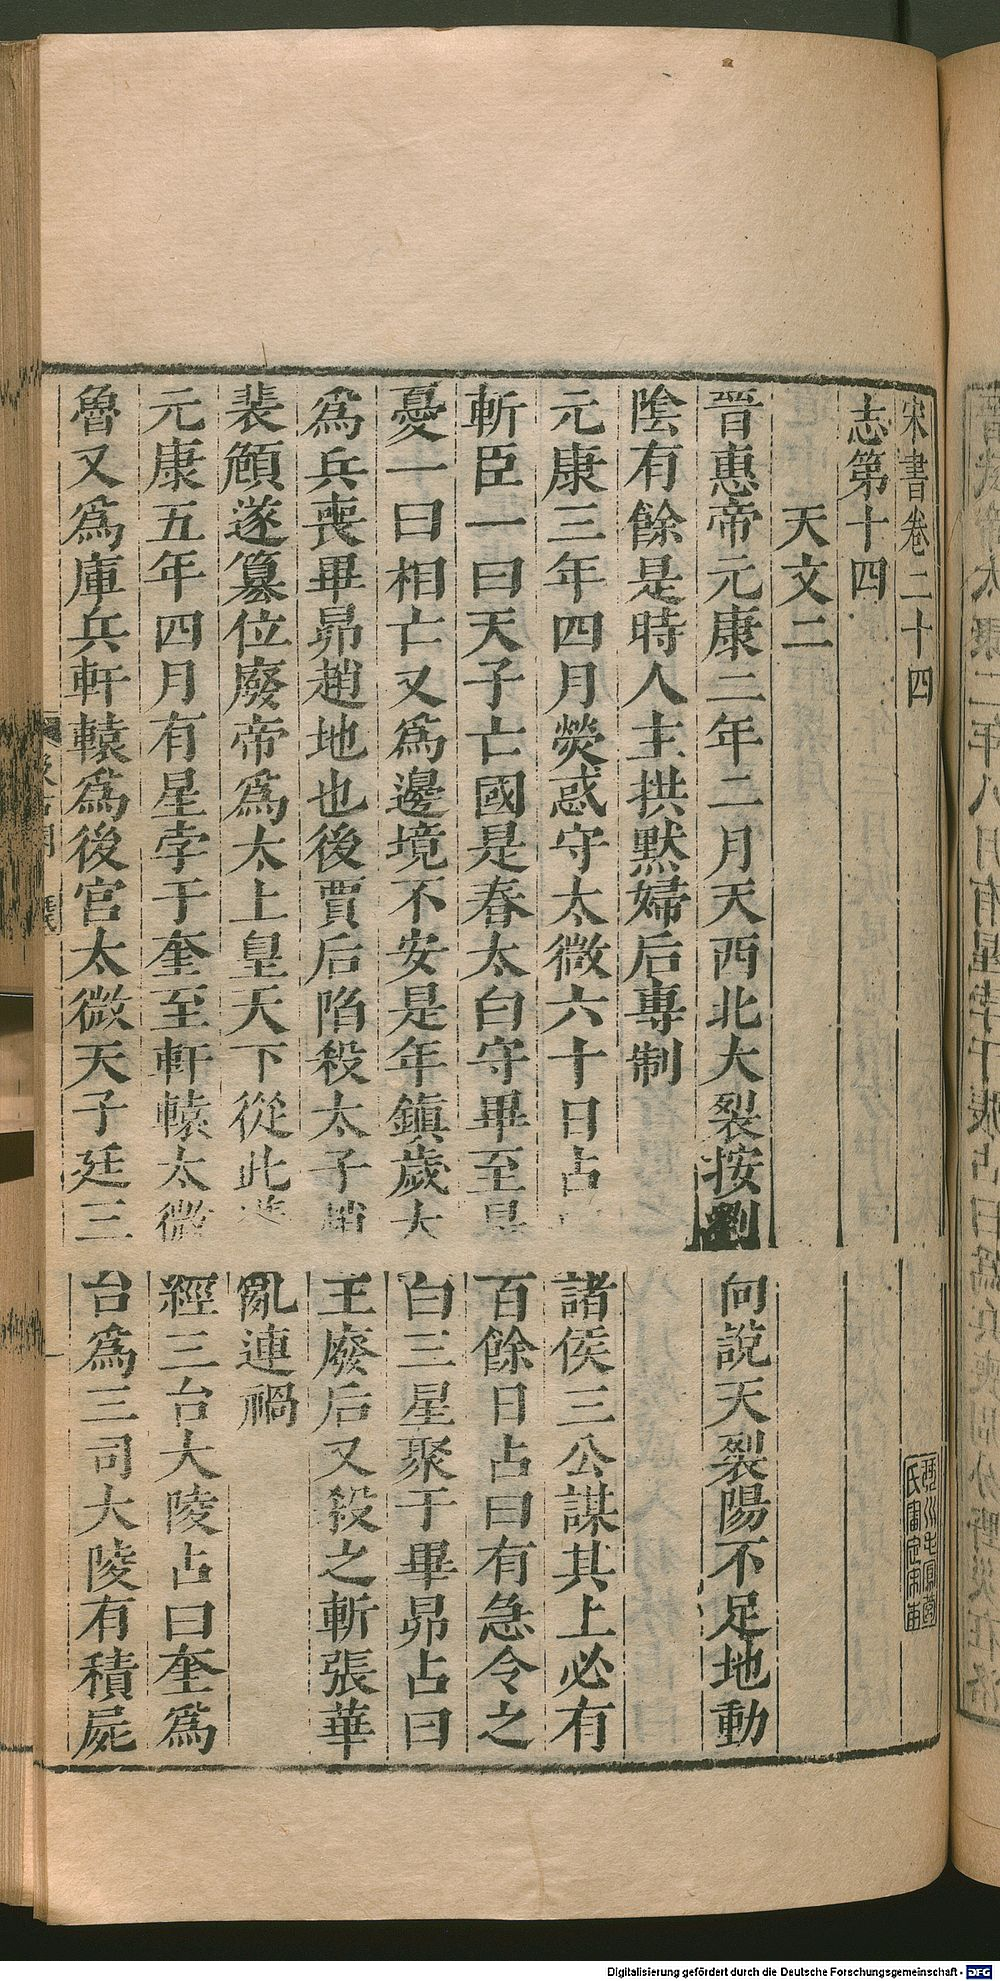 宋書卷二十四
志第十四
天文二
晉惠帝元康二年二月天西北大裂按劉向說天裂陽不足地動
陰有餘是時人主拱默婦后專制
元康三年四月熒惑守太微六十日占諸侯三公謀其上必有
斬臣一曰天子亡國是春太白守畢至是百餘日占曰有急令之
憂一曰相亡又爲邊境不安是年鎮歲太白三星聚于畢昴占曰
爲兵喪畢昴趙地也後賈后陷殺太子趙王廢后又殺之斬張華
裴頠遂篡位廢帝爲太上皇天下從此遘亂連禍
元康五年四月有星孛于奎至軒轅太微經三台大陵占曰奎爲
魯又爲庫兵軒轅爲後宮太微天子廷三台爲三司大陵有積屍
Digitalisierung gefördert durch die Deutsche Forschungsgemeinschaft - DFG